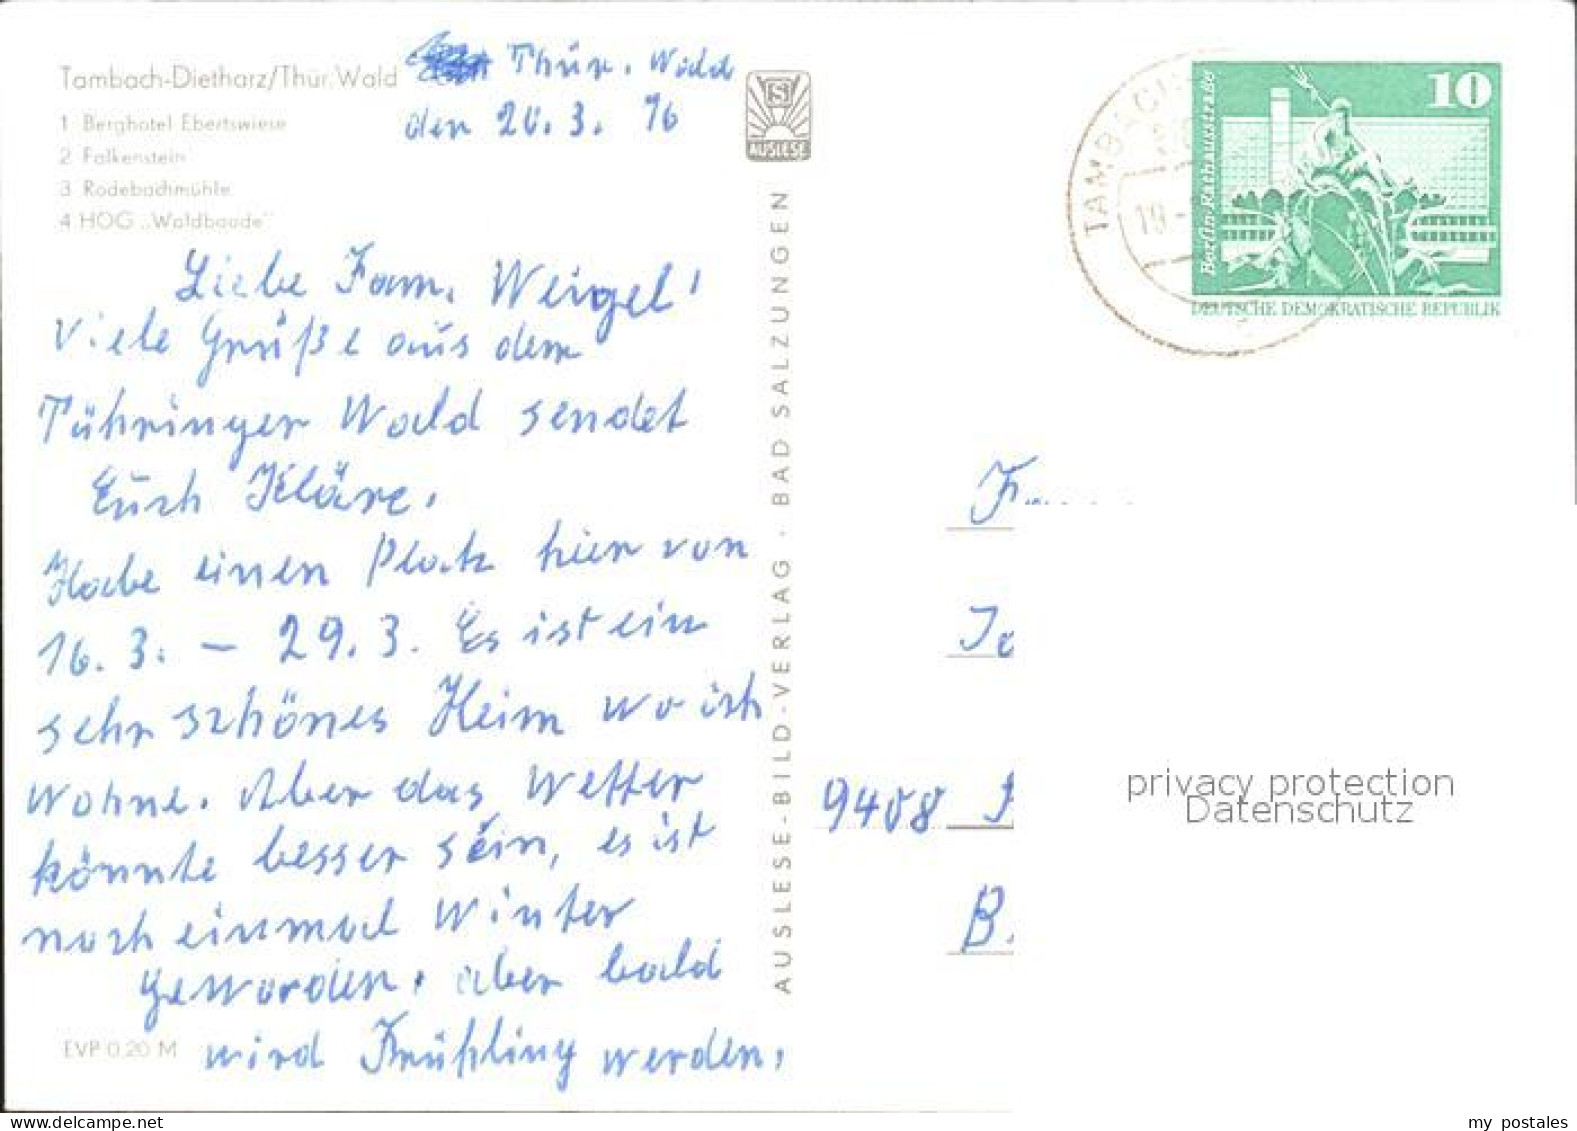 Tambach-Dietharz/Thür. Wald
1 Berghotel Ebertswiese
2 Falkenstein
3 Rodebachmühle
4 HOG „Waldbaude"
Thür. Wald
den 20.3. 76
AUSLESE
Liebe Fam. Weigel!
Viele Grüße aus dem
Tühringer Wald sendet
Euch Kläre.
Habe einen Platz hier von
16.3. – 29.3. Es ist ein
sehr schönes Heim wo ich
wohne. Aber das Wetter
könnte besser sein, es ist
noch einmal Winter
geworden. aber bald
wird Frühling werden.
EVP 0,20 M
AUSLESE-BILD-VERLAG · BAD SALZUNGEN
TAMBACH
19
10
Berlin-Rathausstraße
DEUTSCHE DEMOKRATISCHE REPUBLIK
9408
B.
privacy protection
Datenschutz
www.delcampe.net
my postales